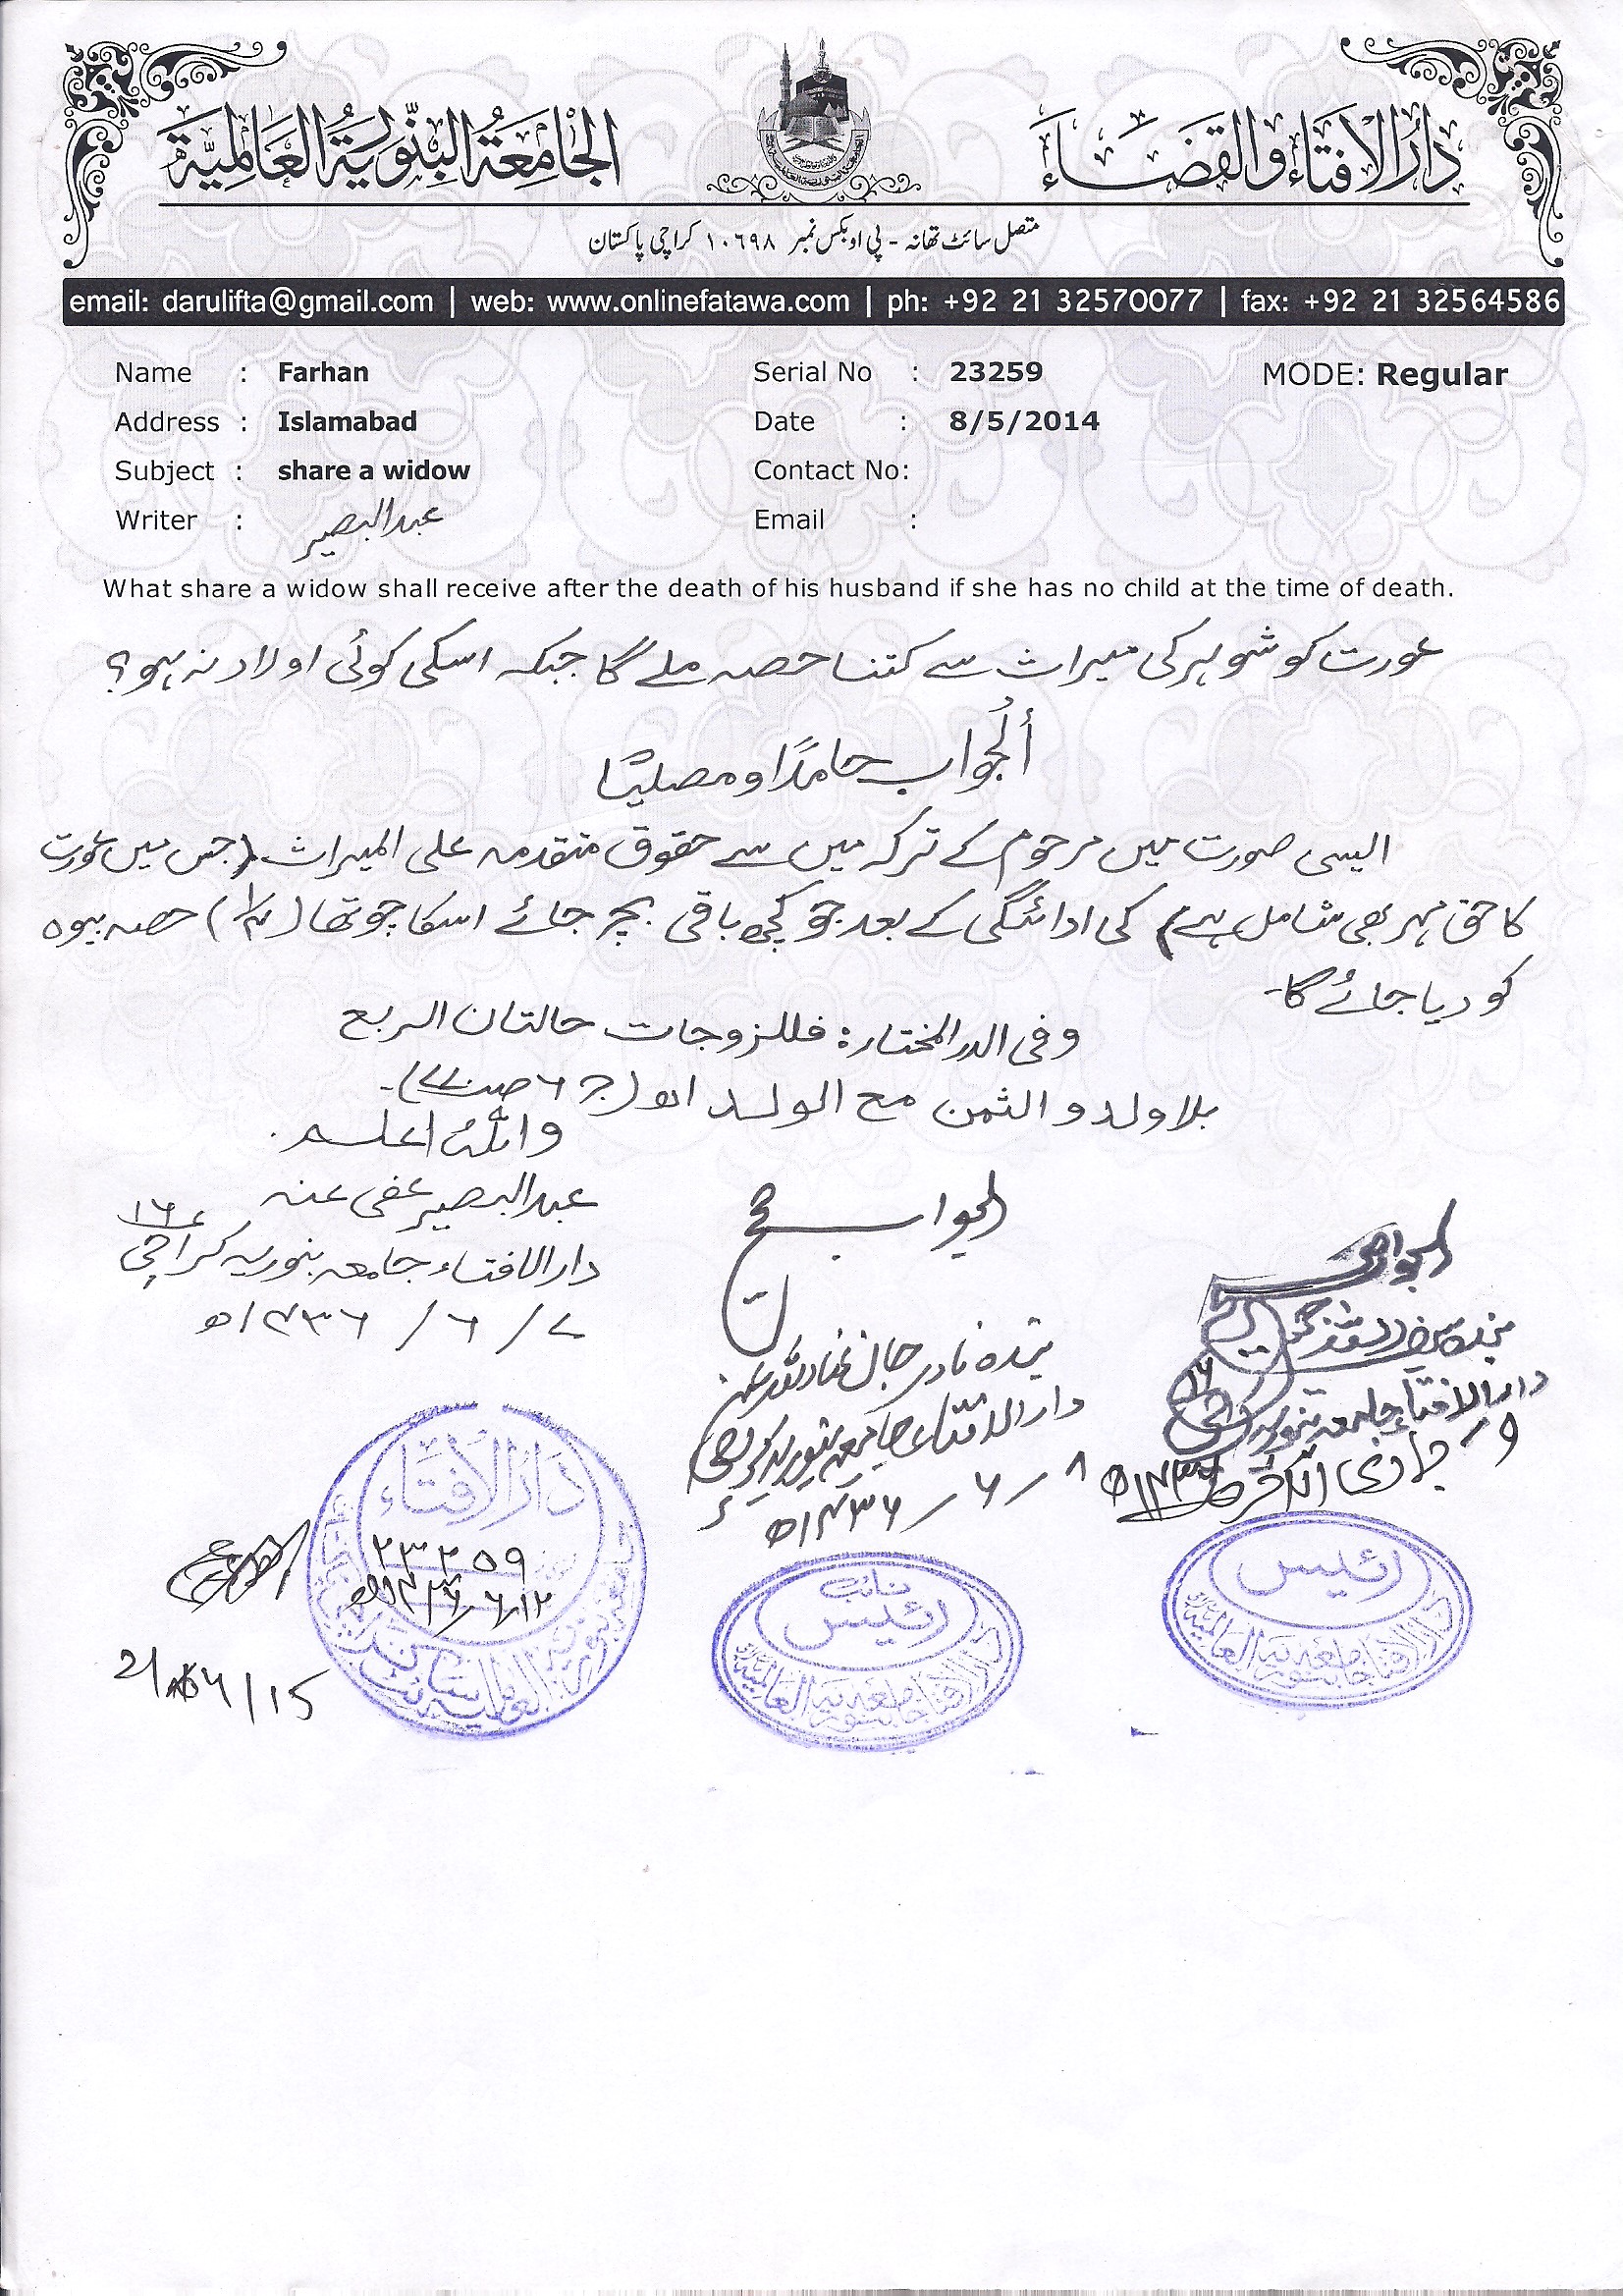 دارالافتاء والقضاء
الجامعة البنورية العالمية
متصل سائٹ تھانہ - پی او بکس نمبر ۱۰٦۹۸ کراچی پاکستان
email: darulifta@gmail.com | web: www.onlinefatawa.com | ph: +92 21 32570077 | fax: +92 21 32564586
Name : Farhan Serial No : 23259 MODE: Regular
Address : Islamabad Date : 8/5/2014
Subject : share a widow Contact No:
Writer : عبدالبصیر Email :
What share a widow shall receive after the death of his husband if she has no child at the time of death.
عورت کو شوہر کی میراث سے کتنا حصہ ملے گا جبکہ اسکی کوئی اولاد نہ ہو؟
ألجواب حامدًا و مصلیًا
ایسی صورت میں مرحوم کے ترکہ میں سے حقوق متقدمہ علی المیراث (جس میں عورت
کا حق مہر بھی شامل ہے) کی ادائیگی کے بعد جو کچھ باقی بچ جائے اسکا چوتھا (۱/۴) حصہ بیوہ
کو دیا جائے گا۔
وفی الدر المختار: فللزوجات حالتان الربع
بلا ولد و الثمن مع الولد اھ (ج ٦ صـ ۷۷۰)۔
واللہ اعلم
عبدالبصیر عفی عنہ
دارالافتاء جامعہ بنوریہ کراچی ۱٦
۷ / ٦ / ۱۴۳٦ھ
الجواب صحیح
بندہ نادر جان
دارالافتاء جامعہ بنوریہ کراچی
۸ / ٦ / ۱۴۳٦ھ
الجواب صحیح
دارالافتاء جامعہ بنوریہ
۹ جمادی
دارالافتاء
۲۳۲۵۹
۱۲ / ٦ / ۱۴۳٦ھ
نائب
رئیس
دارالافتاء جامعہ بنوریہ العالمیہ
رئیس
دارالافتاء جامعہ بنوریہ العالمیہ